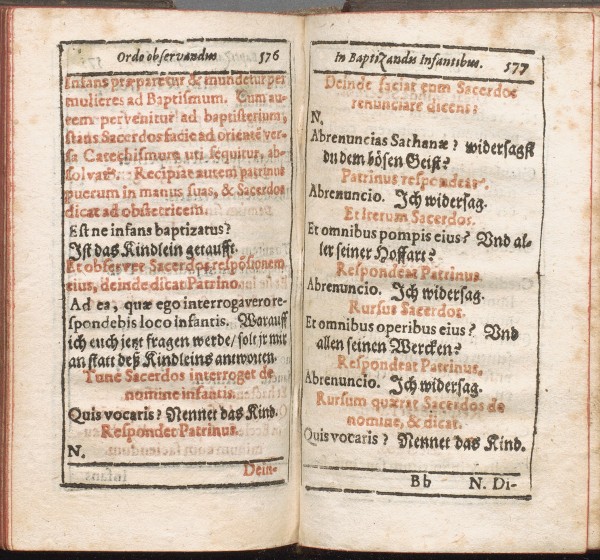 Ordo observandus 576
Infans præparetur & mundetur per
mulieres ad Baptismum. Cum au-
tem pervenitur ad baptisterium,
stans Sacerdos facie ad orientē ver-
sa Catechismum uti sequitur, ab-
solvat. Recipiat autem patrinus
puerum in manus suas, & Sacerdos
dicat ad obstetricem.
Est ne infans baptizatus?
Ist das Kindlein getaufft.
Et observet Sacerdos respōsionem
eius, deinde dicat Patrino.
Ad ea, quæ ego interrogavero re-
spondebis loco infantis. Warauff
ich euch jetzt fragen werde/ solt jr mir
an statt deß Kindleins antworten.
Tunc Sacerdos interroget de
nomine infantis.
Quis vocaris? Nennet das Kind.
Respondet Patrinus.
N.
Dein-
In Baptizandis Infantibus. 577
Deinde faciat eum Sacerdos
renunciare dicens:
N.
Abrenuncias Sathanæ? widersagst
du dem bösen Geist?
Patrinus respondeat.
Abrenuncio. Ich widersag.
Et Iterum Sacerdos.
Et omnibus pompis eius? Und al-
ler seiner Hoffart?
Respondeat Patrinus.
Abrenuncio. Ich widersag.
Rursus Sacerdos.
Et omnibus operibus eius? Und
allen seinen Wercken?
Respondeat Patrinus.
Abrenuncio. Ich widersag.
Rursum quærat Sacerdos de
nomine, & dicat.
Quis vocaris? Nennet das Kind.
Bb N. Di-